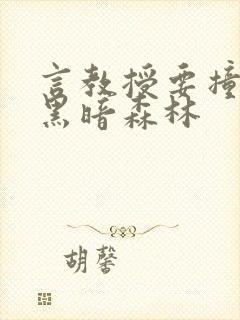 言教授要撞
黑暗森林
胡馨